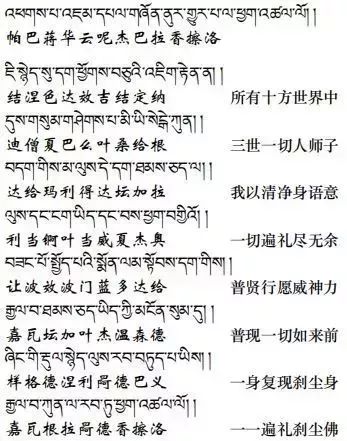 འཕགས་པ་འཇམ་དཔལ་གཞོན་ནུར་གྱུར་པ་ལ་ཕྱག་འཚལ་ལོ། །
帕巴蒋华云呢杰巴拉香擦洛
ཇི་སྙེད་སུ་དག་ཕྱོགས་བཅུའི་འཇིག་རྟེན་ན། །
结涅色达效吉结定纳 所有十方世界中
དུས་གསུམ་གཤེགས་པ་མི་ཡི་སེངྒེ་ཀུན། །
迪僧夏巴么叶桑给根 三世一切人师子
བདག་གིས་མ་ལུས་དེ་དག་ཐམས་ཅད་ལ། །
达给玛利得达坛加拉 我以清净身语意
ལུས་དང་ངག་ཡིད་དང་བས་ཕྱག་བགྱིའོ། །
利当锕叶当威夏杰奥 一切遍礼尽无余
བཟང་པོ་སྤྱོད་པའི་སྨོན་ལམ་སྟོབས་དག་གིས། །
让波效波门蓝多达给 普贤行愿威神力
རྒྱལ་བ་ཐམས་ཅད་ཡིད་ཀྱི་མངོན་སུམ་དུ། །
嘉瓦坛加叶杰温森德 普现一切如来前
ཞིང་གི་རྡུལ་སྙེད་ལུས་རབ་བཏུད་པ་ཡིས། །
样格德涅利𠵽德巴义 一身复现刹尘身
རྒྱལ་བ་ཀུན་ལ་རབ་ཏུ་ཕྱག་འཚལ་ལོ། །
嘉瓦根拉𠵽德香擦洛 一一遍礼刹尘佛